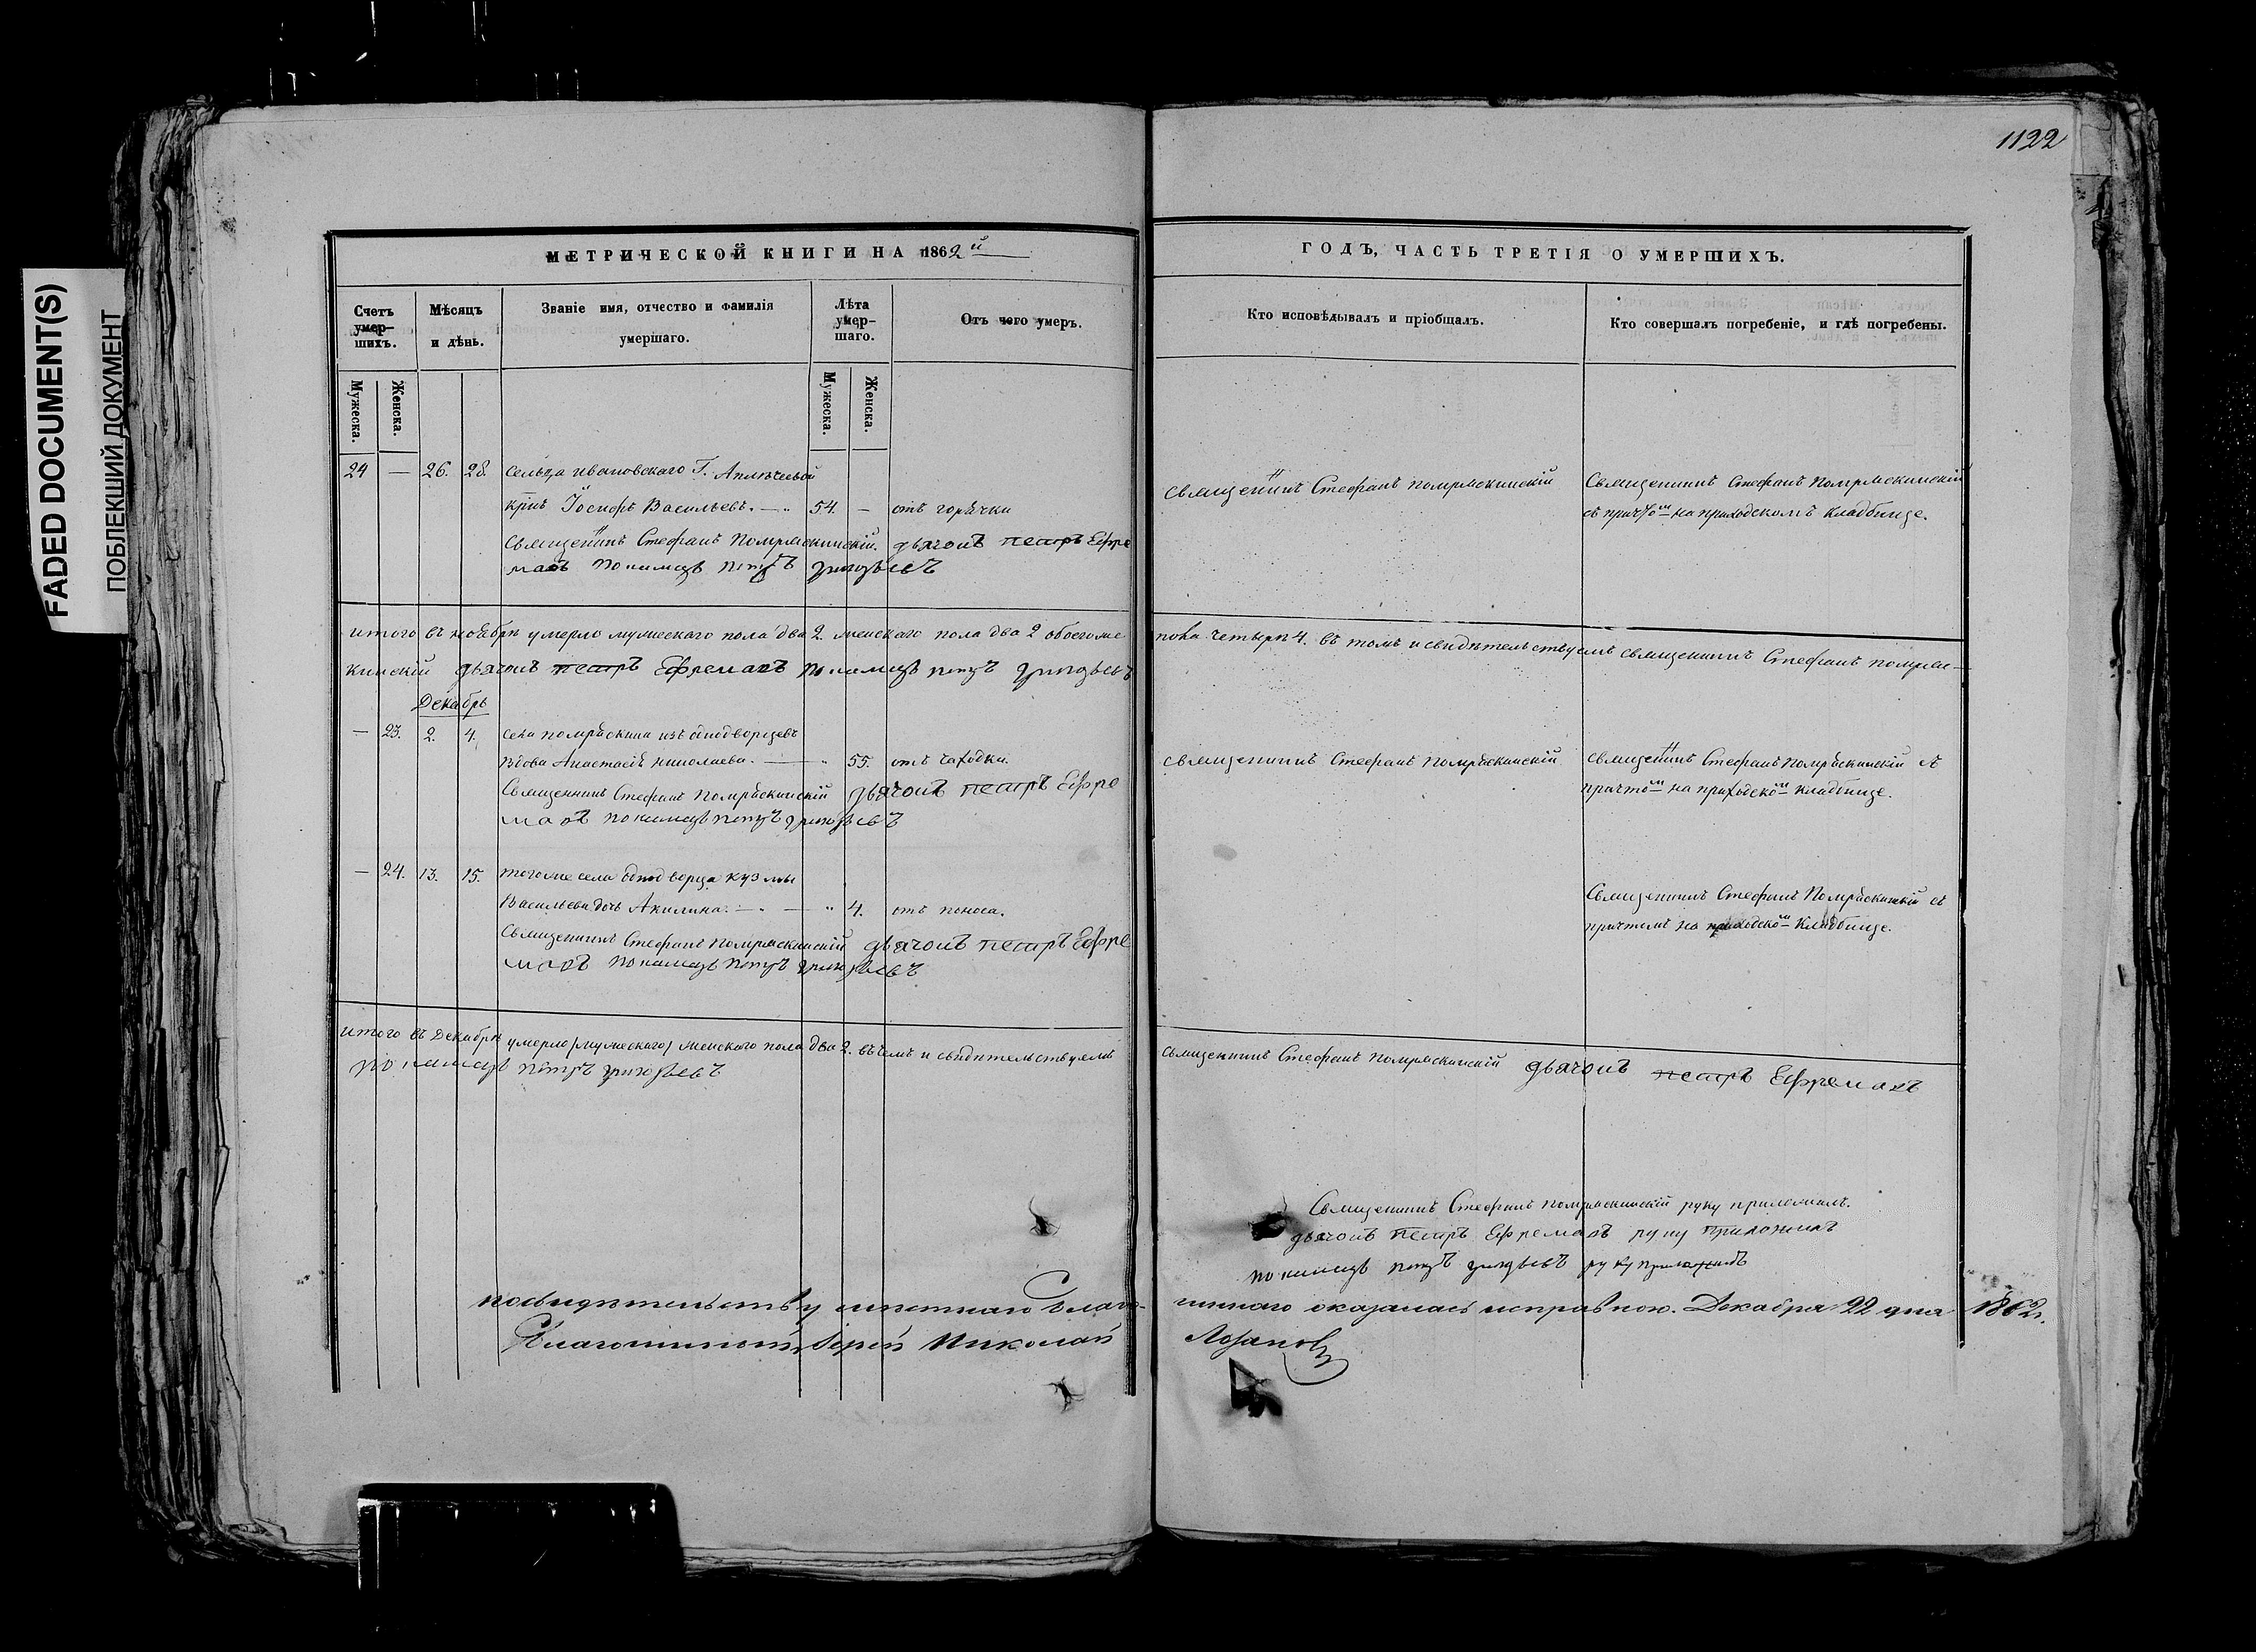 1122
FADED DOCUMENT(S)
ПОБЛЕКШИЙ ДОКУМЕНТ
МЕТРИЧЕСКОЙ КНИГИ НА 1862й
ГОДЪ, ЧАСТЬ ТРЕТІЯ О УМЕРШИХЪ.
Счетъ умер-шихъ.
Мѣсяцъ и дѣнь.
Званіе имя, отчество и фамилія умершаго.
Лѣта умер-шаго.
Отъ чего умеръ.
Кто исповѣдывалъ и пріобщалъ.
Кто совершалъ погребеніе, и гдѣ погребены.
Мужеска.
Женска.
Мужеска.
Женска.
24 — 26. 28. Сельца Ивановскаго Г.
крнъ Іосифъ Васильевъ. — 54. — отъ горячки
Священникъ Стефанъ Помряскинскій
Священникъ Стефанъ Помряскинскій
съ причтомъ на приходскомъ кладбище.
Священникъ Стефанъ Помряскинскій. дьячокъ петръ Ефре
мовъ пономарь петръ
итого въ ноябрѣ умерло мужескаго пола два 2. женскаго пола два 2 обоегоже
пола четыре 4. въ томъ и свидѣтельствуемъ священникъ Стефанъ помряс-
кинскій дьячокъ петръ Ефремовъ пономарь петръ
Декабрь
— 23. 2. 4. села помряскина изъ однодворцевъ
вдова Анастасія николаева. — " 55. отъ чахотки.
священникъ Стефанъ Помряскинскій
священникъ Стефанъ Помряскинскій съ
причтомъ на приходскомъ кладбище.
Священникъ Стефанъ Помряскинскій дьячокъ петръ Ефре
мовъ пономарь петръ
— 24. 13. 15. тогоже села однодворца кузмы
Васильева дочь Акилина. — " 4. отъ поноса.
Священникъ Стефанъ Помряскинскій съ
причтомъ на приходскомъ кладбище.
Священникъ Стефанъ Помряскинскій дьячокъ петръ Ефре
мовъ пономарь петръ
итого въ Декабрѣ умерло /мужескаго/ женскаго пола два 2. въ чемъ и свидѣтельствуемъ
священникъ Стефанъ помряскинскій дьячокъ петръ Ефремовъ
пономарь петръ
Священникъ Стефанъ помряскинскій руку приложилъ.
дьячокъ петръ Ефремовъ руку приложилъ
пономарь петръ руку приложилъ
посвидѣтельству благо-
чиннаго оказалась исправною. Декабря 22 дня 1862г.
Благочинный Іерей Николай